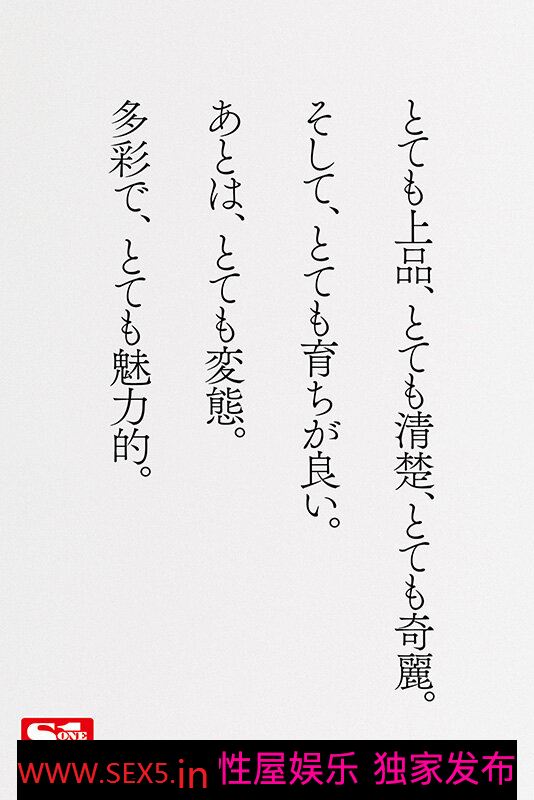 とても上品、とても清楚、とても奇麗。
そして、とても育ちが良い。
あとは、とても変態。
多彩で、とても魅力的。
S1
ONE
WWW.SEX5.in 性屋娱乐 独家发布